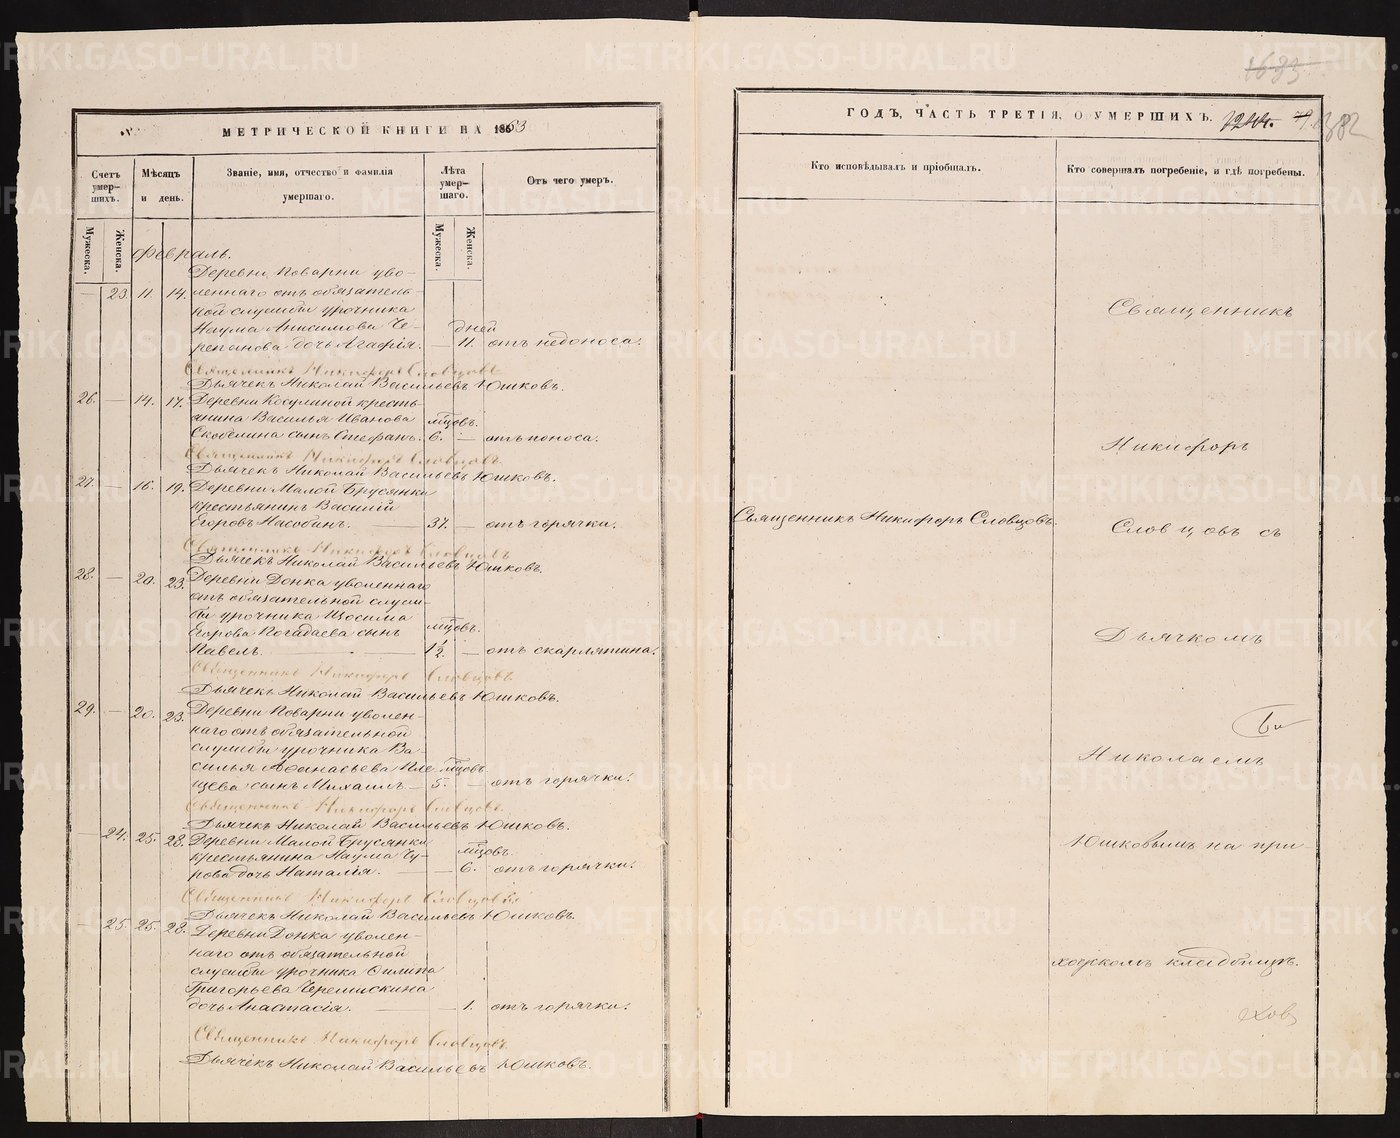 МЕТРИЧЕСКОЙ КНИГИ НА 1863
Счетъ умер-шихъ.
Мѣсяцъ и день.
Званіе, имя, отчество и фамилія умершаго.
Лѣта умер-шаго.
Отъ чего умеръ.
Мужеска.
Женска.
Мужеска.
Женска.
Февраль.
Деревни Поварни уво-
— 23. 11. 14. леннаго отъ обязатель-
ной службы урочника
Наума Анисимова Че- дней
репанова дочь Агафія. — 11. отъ недоноса.
Священникъ Никифоръ Словцовъ
Дьячекъ Николай Васильевъ Юшковъ.
26. — 14. 17. Деревни Косулиной кресть-
янина Василья Иванова мѣцовъ.
Скобелина сынъ Стефанъ. 6. — отъ поноса.
Священникъ Никифоръ Словцовъ
Дьячекъ Николай Васильевъ Юшковъ.
27. — 16. 19. Деревни Малой Брусянки
крестьянинъ Василій
Егоровъ Насобинъ. — 37. — отъ горячки.
Священникъ Никифоръ Словцовъ
Дьячекъ Николай Васильевъ Юшковъ.
28. — 20. 23. Деревни Донка уволеннаго
отъ обязательной служ-
бы урочника Изосима
Егорова Погадаева сынъ мѣцовъ.
Павелъ. — 1/2. — отъ скарлятина.
Священникъ Никифоръ Словцовъ
Дьячекъ Николай Васильевъ Юшковъ.
29. — 20. 23. Деревни Поварни уволен-
наго отъ обязательной
службы урочника Ва-
силья Аѳанасьева Пле- мѣцовъ
щева сынъ Михаилъ — 5. — отъ горячки.
Священникъ Никифоръ Словцовъ.
Дьячекъ Николай Васильевъ Юшковъ.
— 24. 25. 28. Деревни Малой Брусянки
крестьянина Наума Чу- мѣцовъ.
рова дочь Наталія. — — 6. отъ горячки.
Священникъ Никифоръ Словцовъ
Дьячекъ Николай Васильевъ Юшковъ.
— 25. 25. 28. Деревни Донка уволен-
наго отъ обязательной
службы урочника Филипа
Григорьева Черемискина
дочь Анастасія. — — 1. отъ горячки.
Священникъ Никифоръ Словцовъ
Дьячекъ Николай Васильевъ Юшковъ.
1683
ГОДЪ, ЧАСТЬ ТРЕТІЯ, О УМЕРШИХЪ.
Кто исповѣдывалъ и пріобщалъ.
Кто совершалъ погребеніе, и гдѣ погребены.
Священникъ
Никифоръ
Священникъ Никифоръ Словцовъ.
Словцовъ съ
Дьячкомъ
Николаемъ
Юшковымъ на при-
ходскомъ кладбищѣ.
METRIKI.GASO-URAL.RU